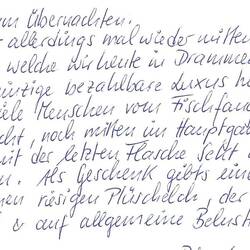 um Übernachten.
allerdings mal wieder mitten
welche wir heute in Drammen
einzige bezahlbare Luxus
viele Menschen vom Fischfang
noch mitten im Hauptge
mit der letzten Flasche Sekt
n. Als Geschenk gibts eine
nen riesigen Plüschelch, der
& auf allgemeine Belust